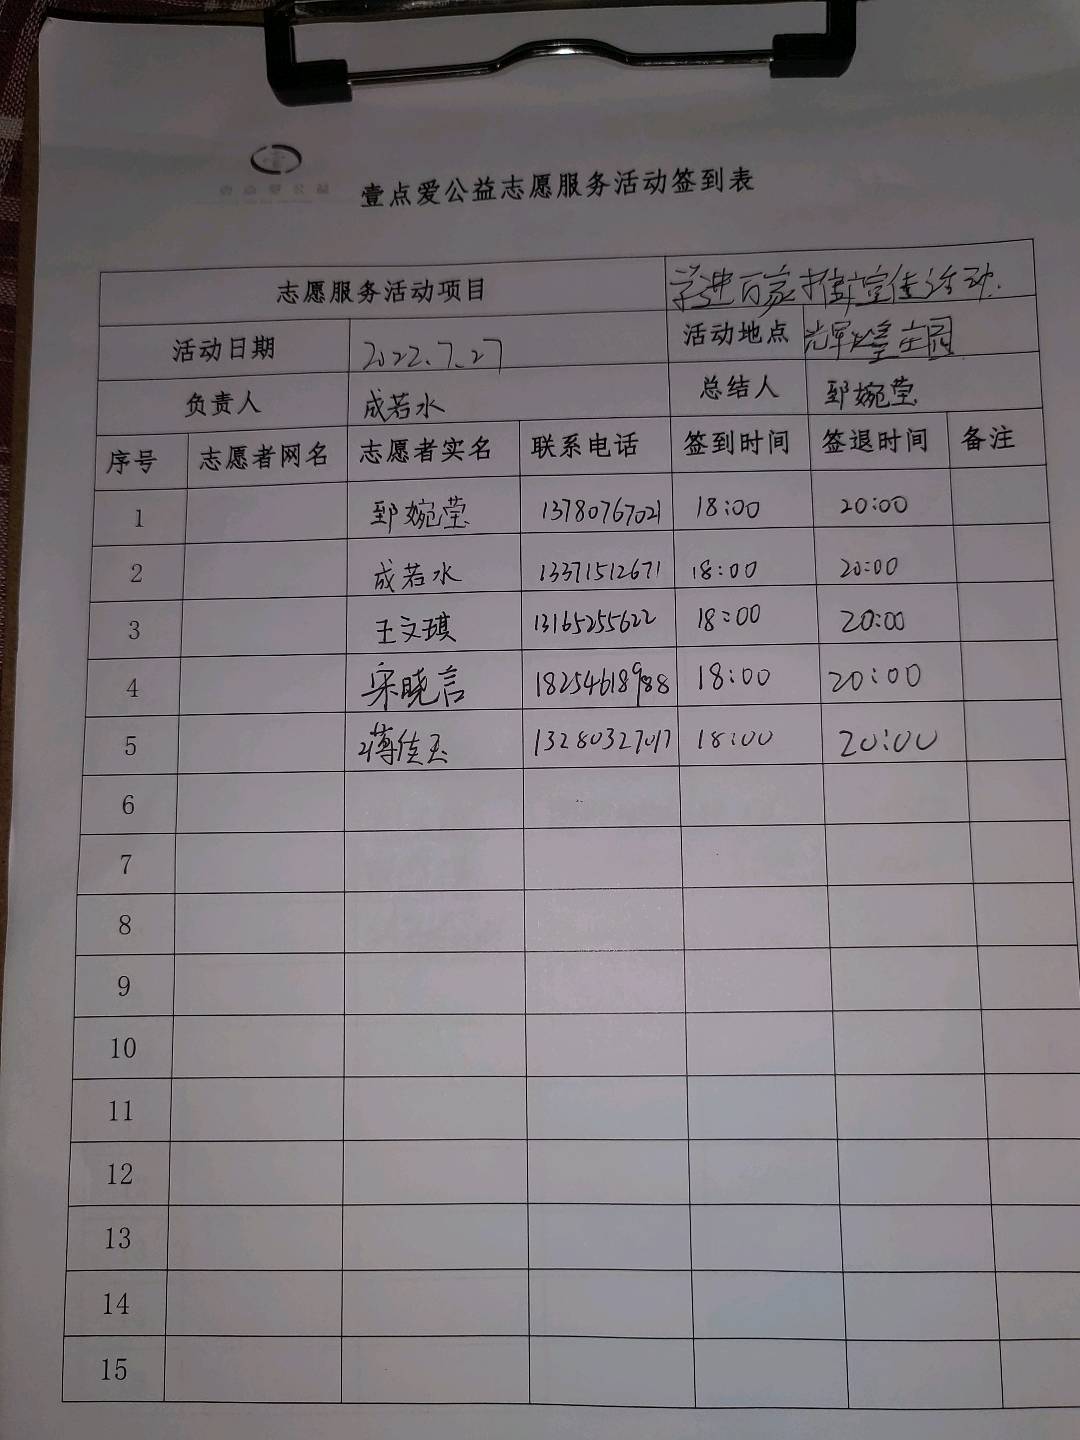 壹点爱公益志愿服务活动签到表
志愿服务活动项目 学进百家 宣传活动.
活动日期 2022.7.27 活动地点 光军 庄园
负责人 成若水 总结人 郅婉莹
序号 志愿者网名 志愿者实名 联系电话 签到时间 签退时间 备注
1 郅婉莹 13780767021 18:00 20:00
2 成若水 13371512671 18:00 20:00
3 王文琪 13165255622 18:00 20:00
4 宋晓言 18254618988 18:00 20:00
5 蒋佳玉 13280327017 18:00 20:00
6
7
8
9
10
11
12
13
14
15